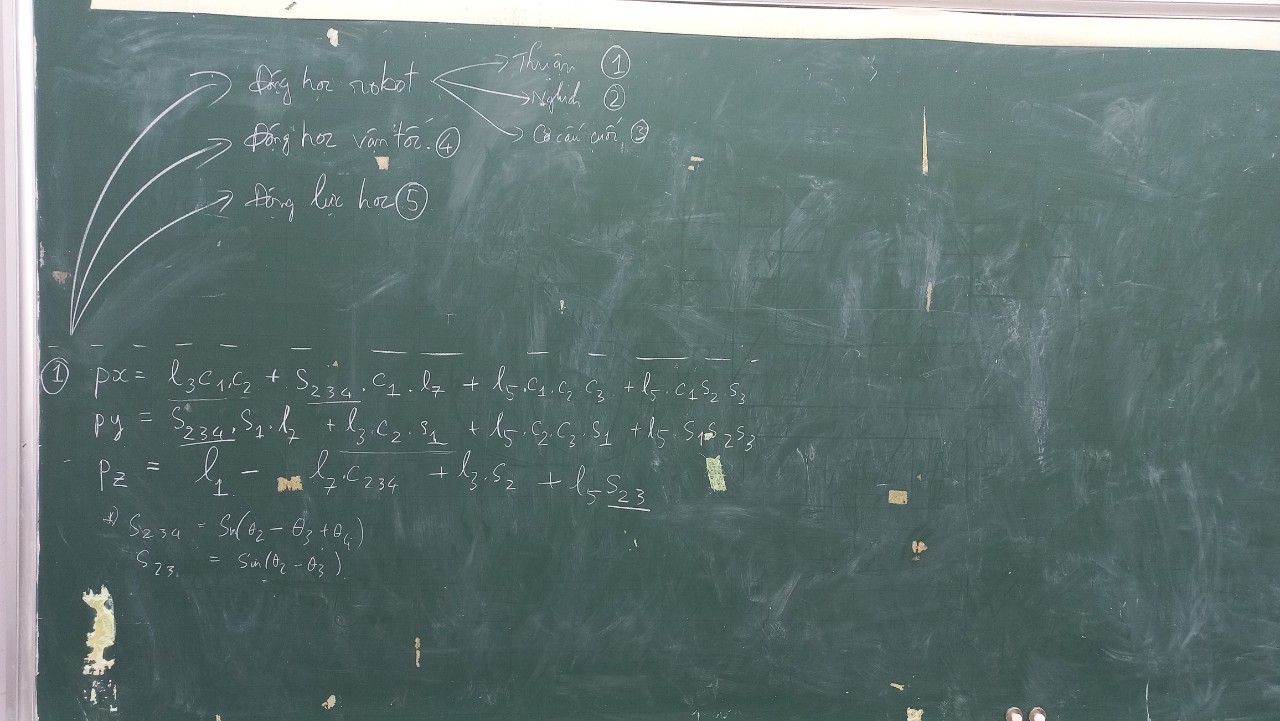 Động học robot
Thuận ①
Nghịch ②
Cơ cấu cuối ③
Động học vận tốc. ④
Động lực học ⑤
① px = l₃c₁.c₂ + S₂₃₄.c₁.l₇ + l₅.c₁.c₂.c₃ + l₅.c₁s₂.s₃
py = S₂₃₄.S₁.l₇ + l₃.c₂.s₁ + l₅.c₂c₃.s₁ + l₅.s₁s₂s₃
pz = l₁ - l₇.c₂₃₄ + l₃.s₂ + l₅s₂₃
*) S₂₃₄ = Sin(θ₂ - θ₃ + θ₄)
S₂₃ = Sin(θ₂ - θ₃).